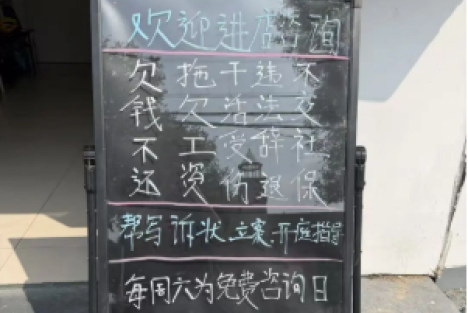 欢迎进店咨询
欠钱不还
拖欠工资
干活受伤
违法辞退
不交社保
帮写诉状、立案、开庭指导
每周六为免费咨询日